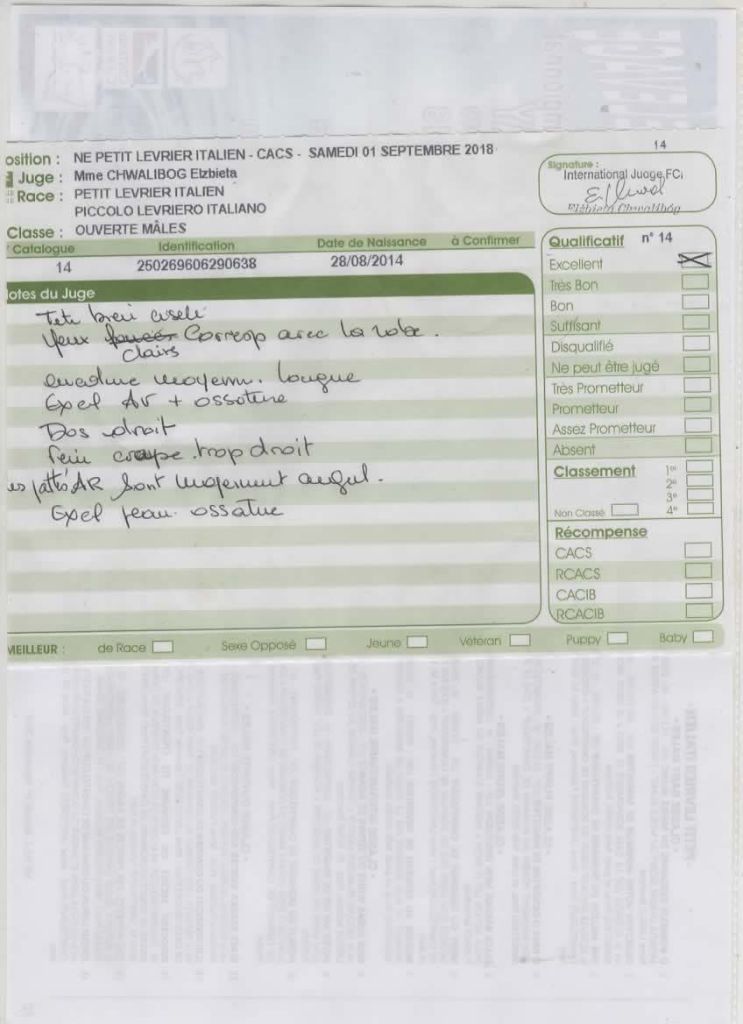 14
osition : NE PETIT LEVRIER ITALIEN - CACS - SAMEDI 01 SEPTEMBRE 2018
Juge : Mme CHWALIBOG Elzbieta
Race : PETIT LEVRIER ITALIEN
PICCOLO LEVRIERO ITALIANO
Classe : OUVERTE MÂLES
Signature :
International Juoge FCI
Catalogue Identification Date de Naissance à Confirmer
14 250269606290638 28/08/2014
otes du Juge
Tete bien ciselé
Yeux Corresp avec la robe.
Clairs
moyenn. longue
Excel AV + ossature
Dos droit
croupe trop droit
es pattes AR sont moyenment angul.
Excel peau. ossatue
Qualificatif n° 14
Excellent
Très Bon
Bon
Suffisant
Disqualifié
Ne peut être jugé
Très Prometteur
Prometteur
Assez Prometteur
Absent
Classement 1er
2e
3e
Non Classé 4e
Récompense
CACS
RCACS
CACIB
RCACIB
MEILLEUR : de Race Sexe Opposé Jeune Vétéran Puppy Baby